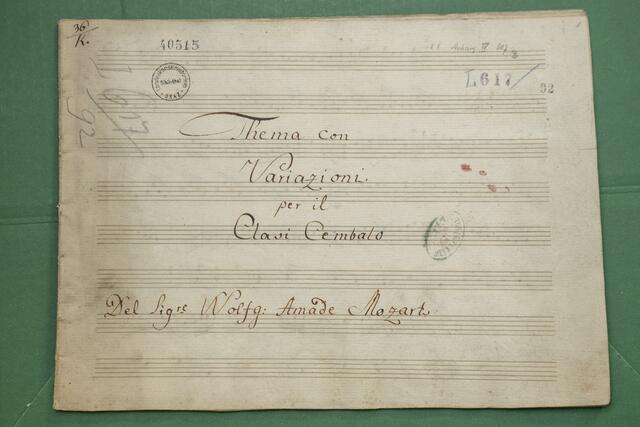 36
K.
40515
L617/
92
L617
92
Thema con
Variazioni.
per il
Clasi Cembalo
Del Sigrs Wolfg: Amade Mozart.